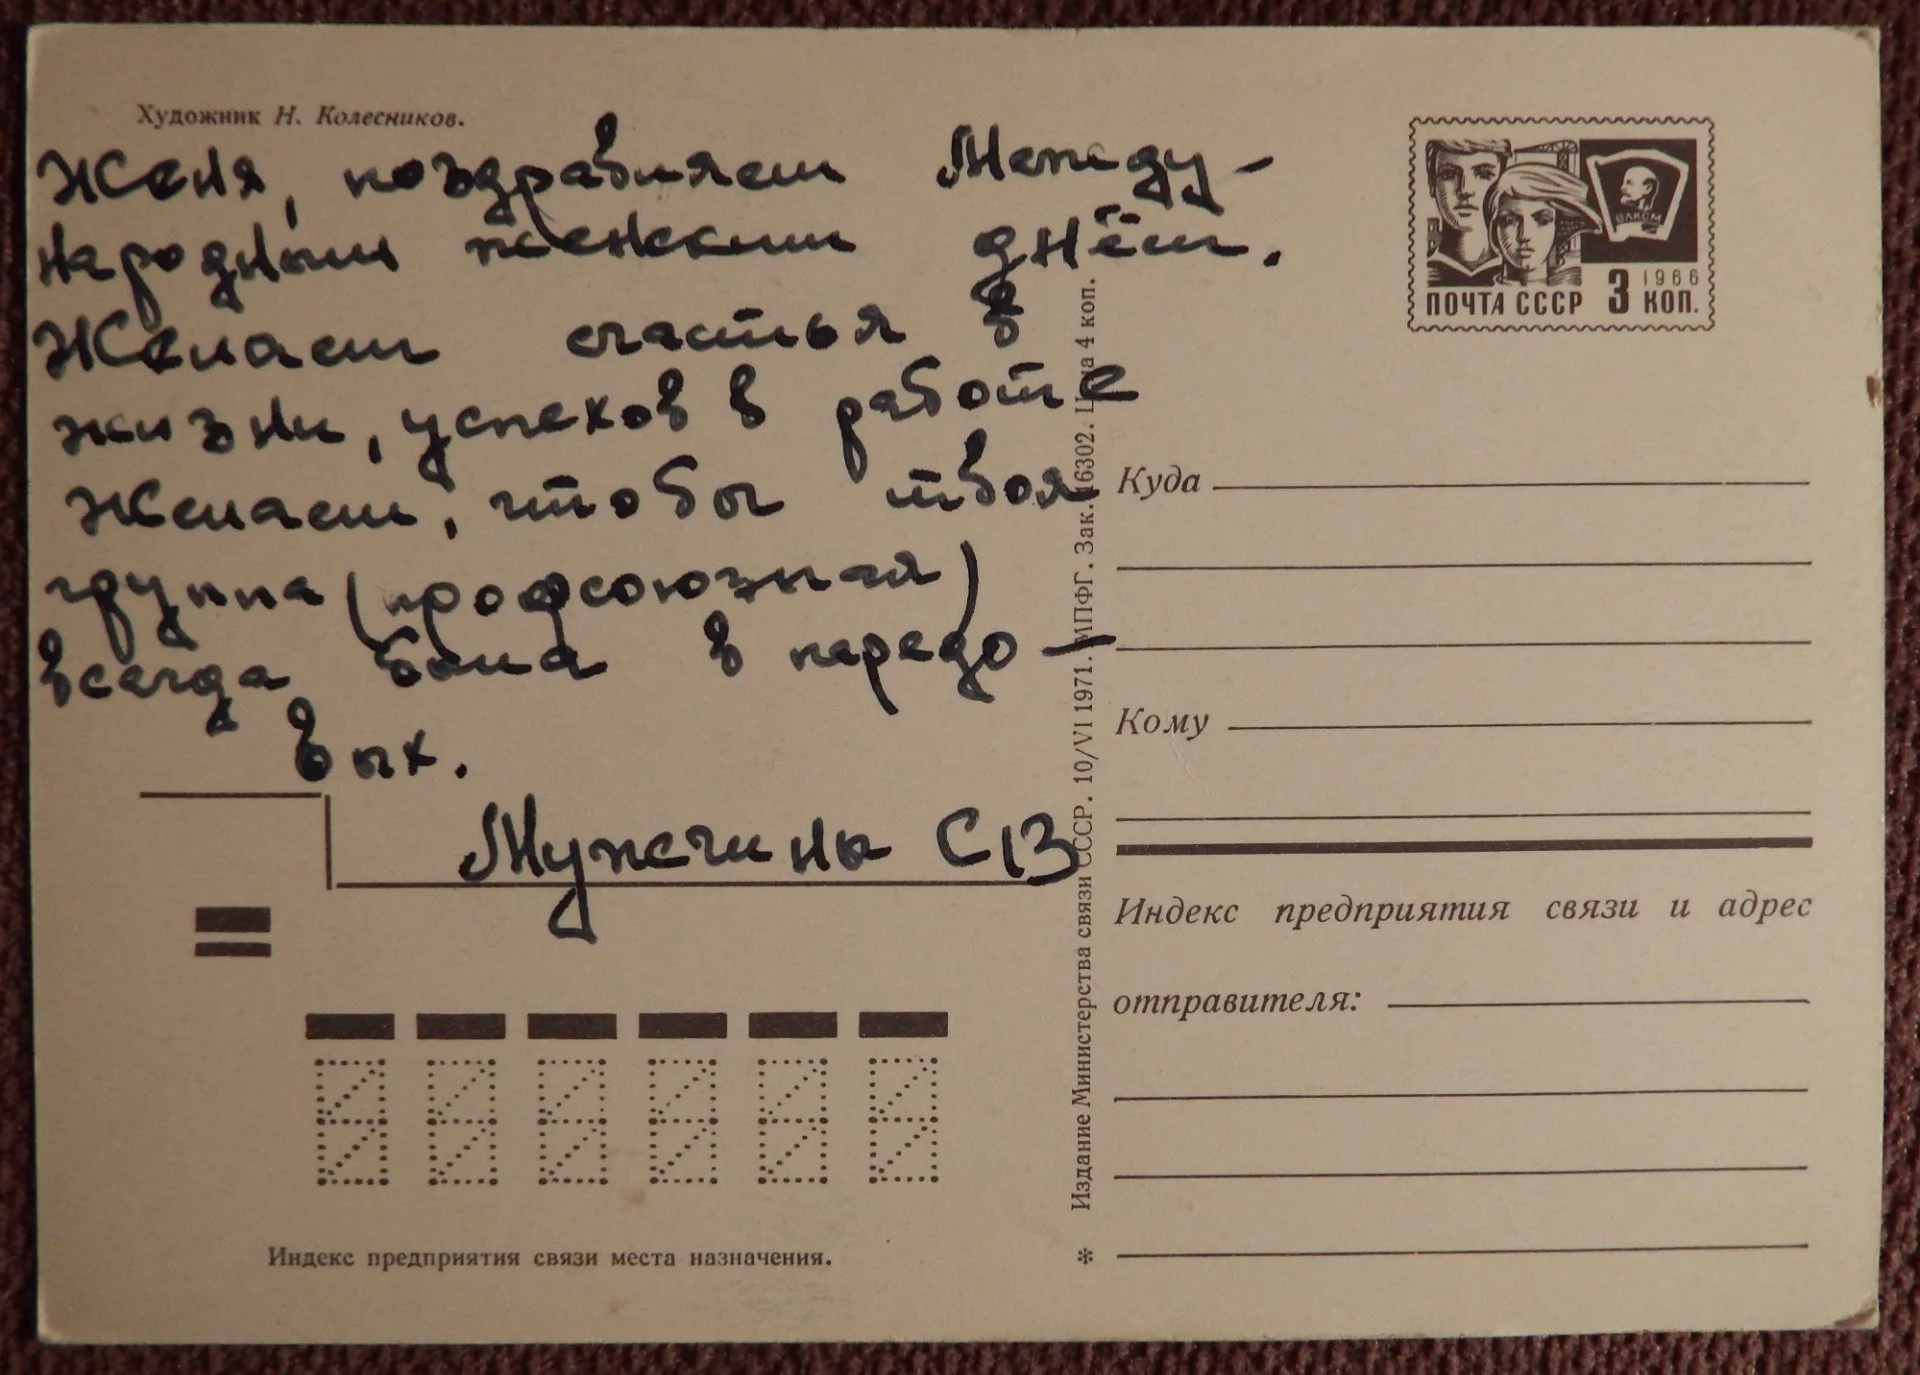 Художник Н. Колесников.
Женя, поздравляем Между-
народным женским днём.
Желаем счастья в
жизни, успехов в работе
Желаем, чтобы твоя
группа (профсоюзная)
всегда была в передо-
вых.
Мужчины С13
ВЛКСМ
1966
ПОЧТА СССР 3 КОП.
Куда
Кому
Индекс предприятия связи и адрес
отправителя:
Издание Министерства связи СССР. 10/VI 1971. МПФГ. Зак. 16302. Цена 4 коп.
*
Индекс предприятия связи места назначения.